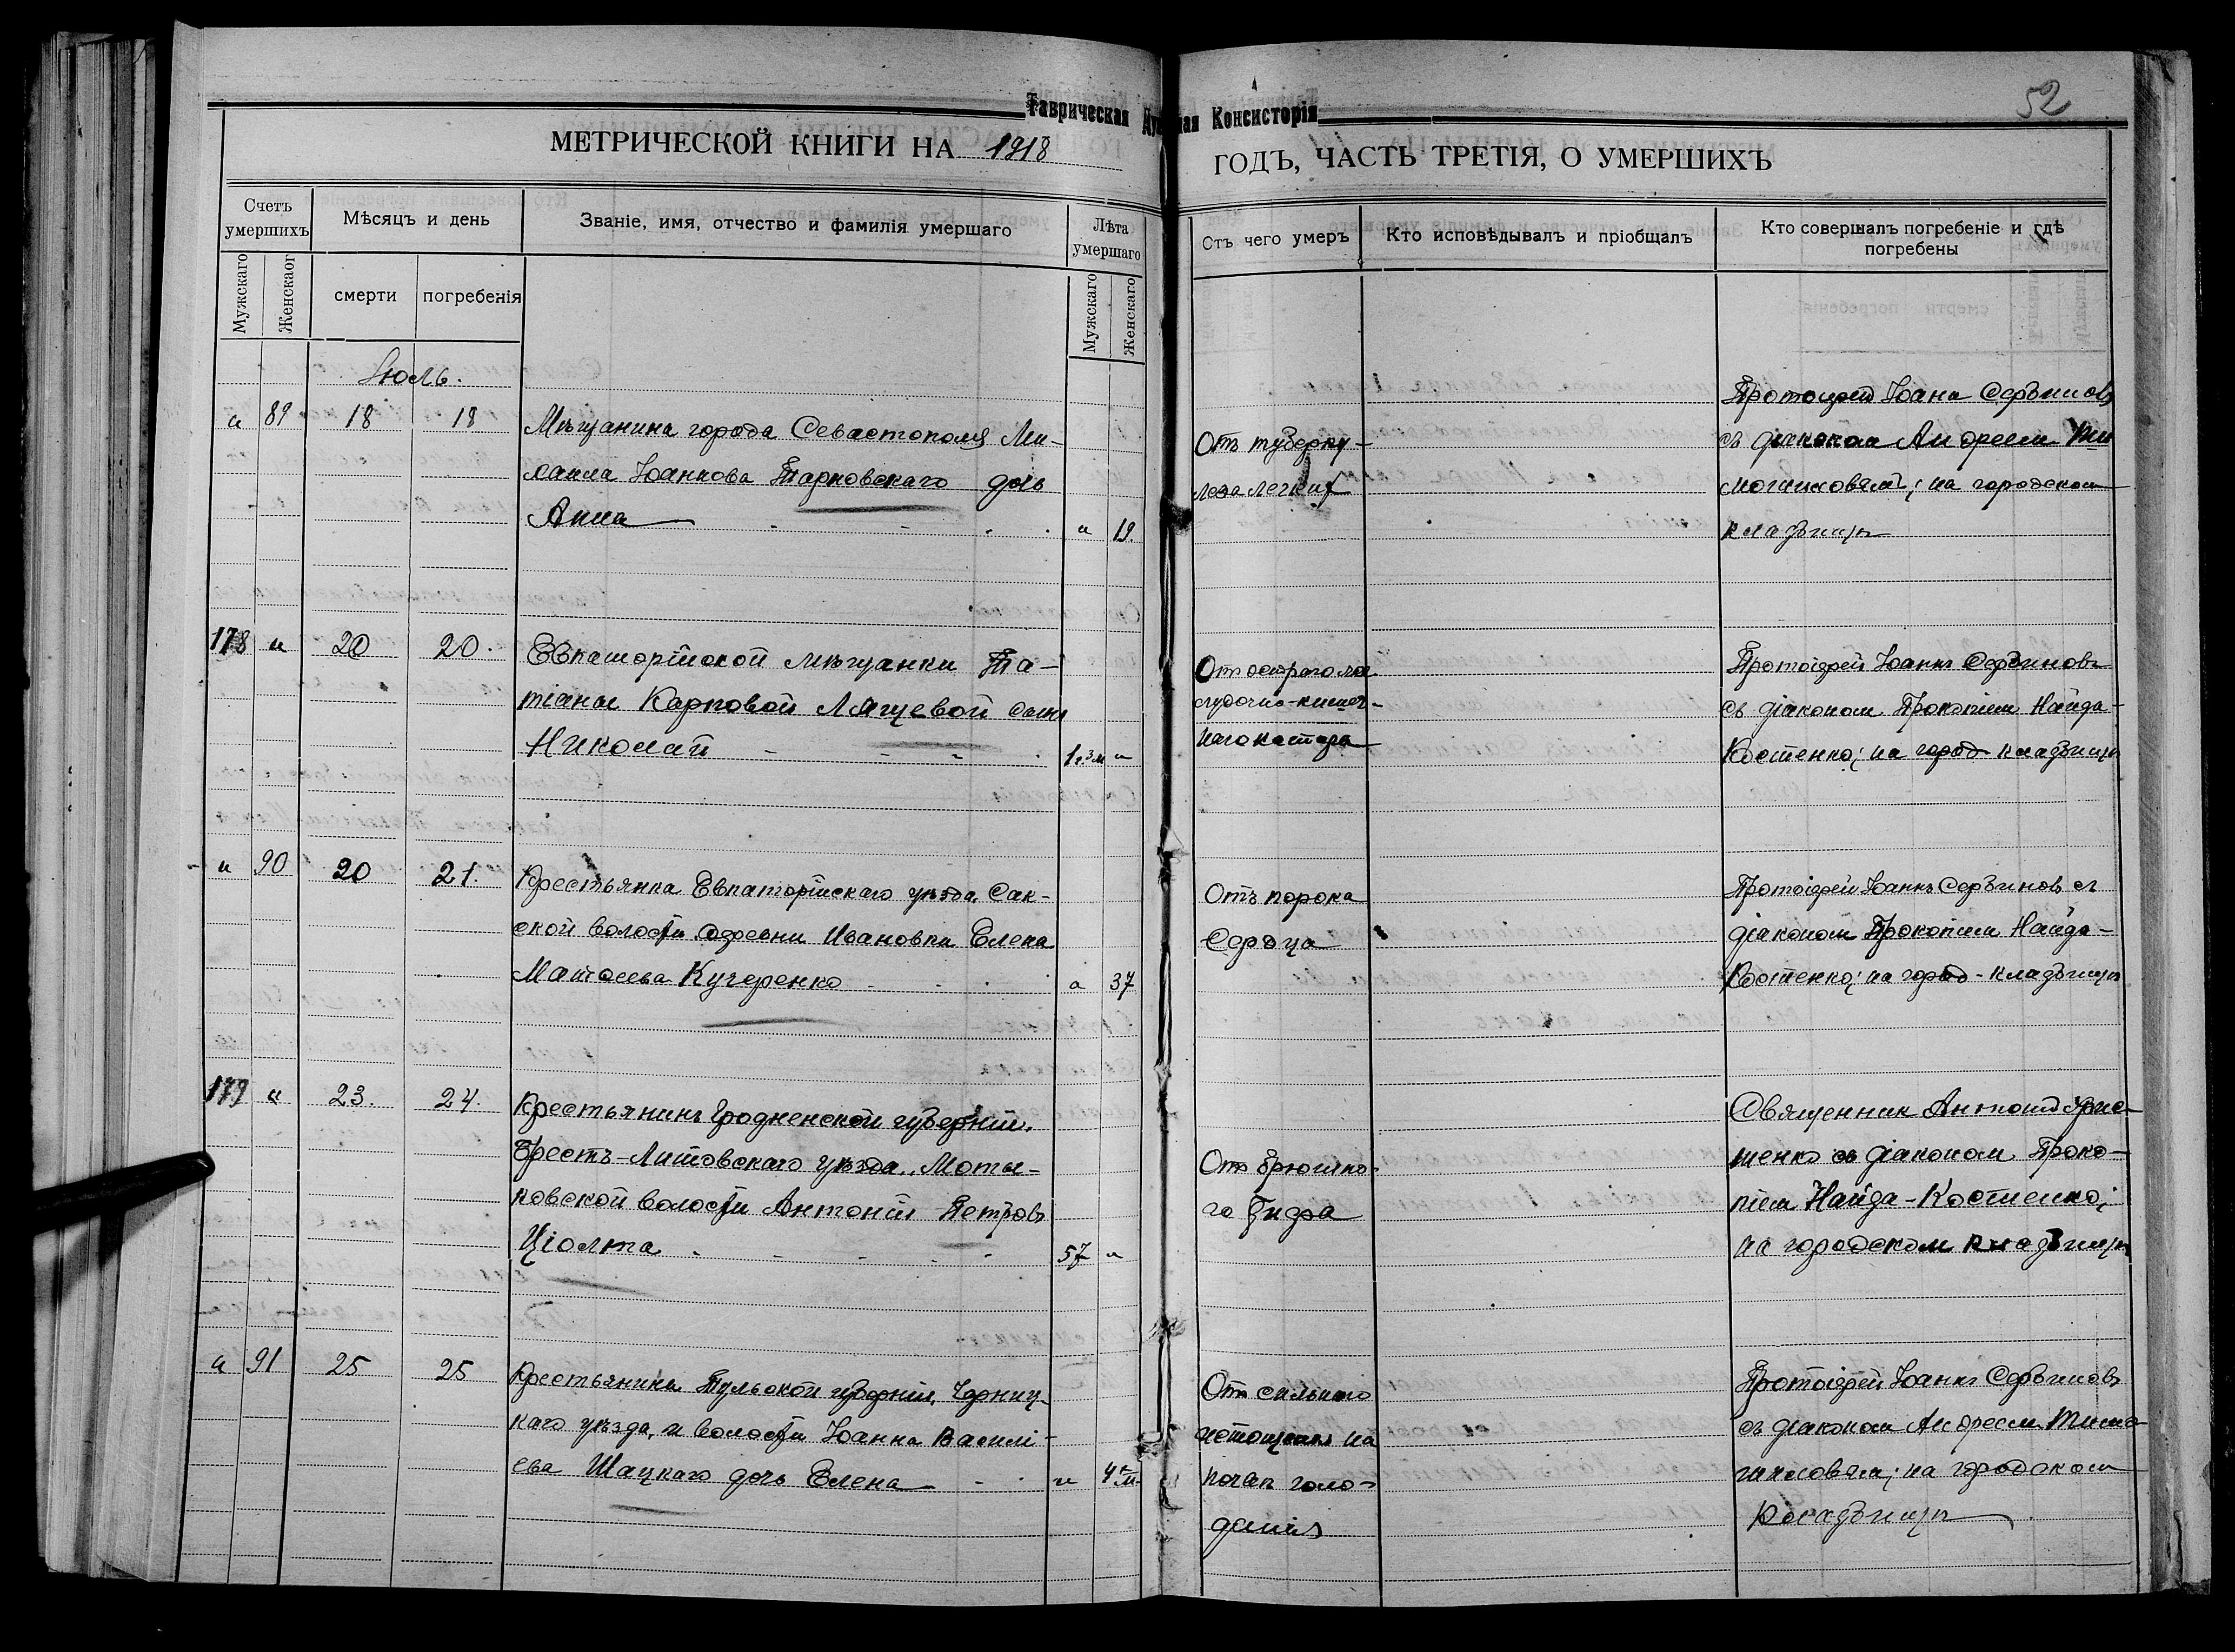 52
Таврическая Духовная Консисторія
МЕТРИЧЕСКОЙ КНИГИ НА 1918
ГОДЪ, ЧАСТЬ ТРЕТІЯ, О УМЕРШИХЪ
Счетъ умершихъ
Мѣсяцъ и день
Званіе, имя, отчество и фамилія умершаго
Лѣта умершаго
Отъ чего умеръ
Кто исповѣдывалъ и пріобщалъ
Кто совершалъ погребеніе и гдѣ погребены
Мужскаго
Женскаог
смерти
погребенія
Мужскаго
Женскаго
Іюль.
„ 89 18 18
Мѣщанина города Севастополя Ми-
хаила Іоаннова Тарновскаго дочь
Анна
„ 19.
Отъ туберку-
леза легких
Протоіерей Іоанн Сербинов
съ діаконом Андреем Ти
мошиловам; на городском
кладбищѣ
178 „ 20 20.
Евпаторійской мѣщанки Та-
тіаны Карповой Лящевой сын
Николай
1г.3м „
От острого же
лудочно-кишеч-
наго катара
Протоіерей Іоаннъ Сербиновъ
съ діаконом Прокопіем Найда-
Костенко; на город кладбищѣ
„ 90 20 21.
Крестьянка Евпаторійскаго уѣзда, Сак-
ской волости деревни Ивановки Елена
Матѳеева Кучеренко
„ 37
Отъ порока
Сердца
Протоіерей Іоаннъ Сербинов съ
діаконом Прокопіем Найда-
Костенко; на город-кладбищѣ
179 „ 23. 24.
Крестьянинъ Гродненской губерніи,
Брестъ-Литовскаго уѣзда, Моты-
ковской волости Антоній Петров
Ціолта
57 „
От брюшно-
го тифа
Священник Антоній
шенко съ діаконом Проко-
піем Найда-Костенко;
на городском кладбищѣ
„ 91 25 25
Крестьянина Тульской губерніи,
каго уѣзда, и волости Іоанна Василі-
ева Шацкаго дочь Елена
„ 4 м.
От сильнаго
истощенія на
почвѣ голо-
данія
Протоіерей Іоаннъ Сербинов
съ діаконом Андреем Тимо
шиловам; на городском
кладбищѣ